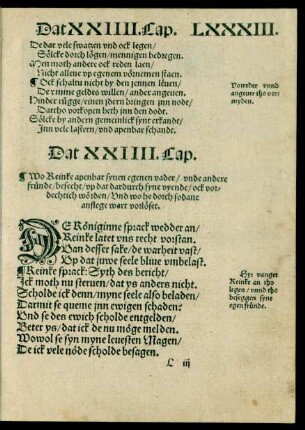 Dat XXIIII. Cap. LXXXIII.
De dar vele swatten vnd ock legen/
Sölcke dorch lögen/mennigen bedregen.
Men moth andere ock reden laen/
Nicht allene vp egenem vörnemen staen.
¶ Ock schaltu nicht by den jennen lëuen/
De rmine geldes vullen/ander angeuen.
Vnder rügge/einen
Dartho vorkopen beth jnn den dodt.
Sölcke by andern gemeinlick synt erkandt/
Jnn vele lastern/vnd apenbar schande.
Vorreder vnnd
angeuer tho vor-
myden.
Dat XXIIII. Cap.
¶ Wo Reinke apenbar synen egenen vader/ vnde andere
fründe/besecht/vp dat dardurch syne vyende/ock vor-
dechtich wörden/Vnd wo he dorch sodane
anslege wart vorlöset.
DE Königinne sprack wedder an/
Reinke latet vns recht vorstan.
Van desser sake/de warheit vast/
Vp dat juwe seele bliue vmbelast.
¶ Reinke sprack: Syth des bericht/
Ick moth nu steruen/dat ys anders nicht.
Scholde ick denn/myne seele also beladen/
Darmit se queme jnn ewigen schaden?
Vnd se des ewich scholde entgelden/
Beter ys/dat ick de nu möge melden.
Wowol se syn myne leuesten Magen/
De ick vele nöde scholde besagen.
Hyr vanget
Reinke an tho
legen/vnnd tho
beseggen syne
egen fründe.
L iij